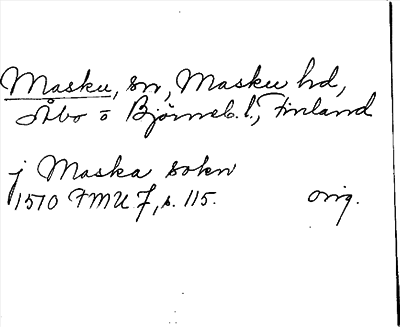 Masku, sn, Masku hd,
Åbo o Björneb. l., Finland
j Maska sokn
1510 FMU 7, s. 115. orig.